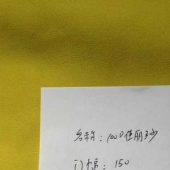 名称：100D佳丽纱
门幅：150